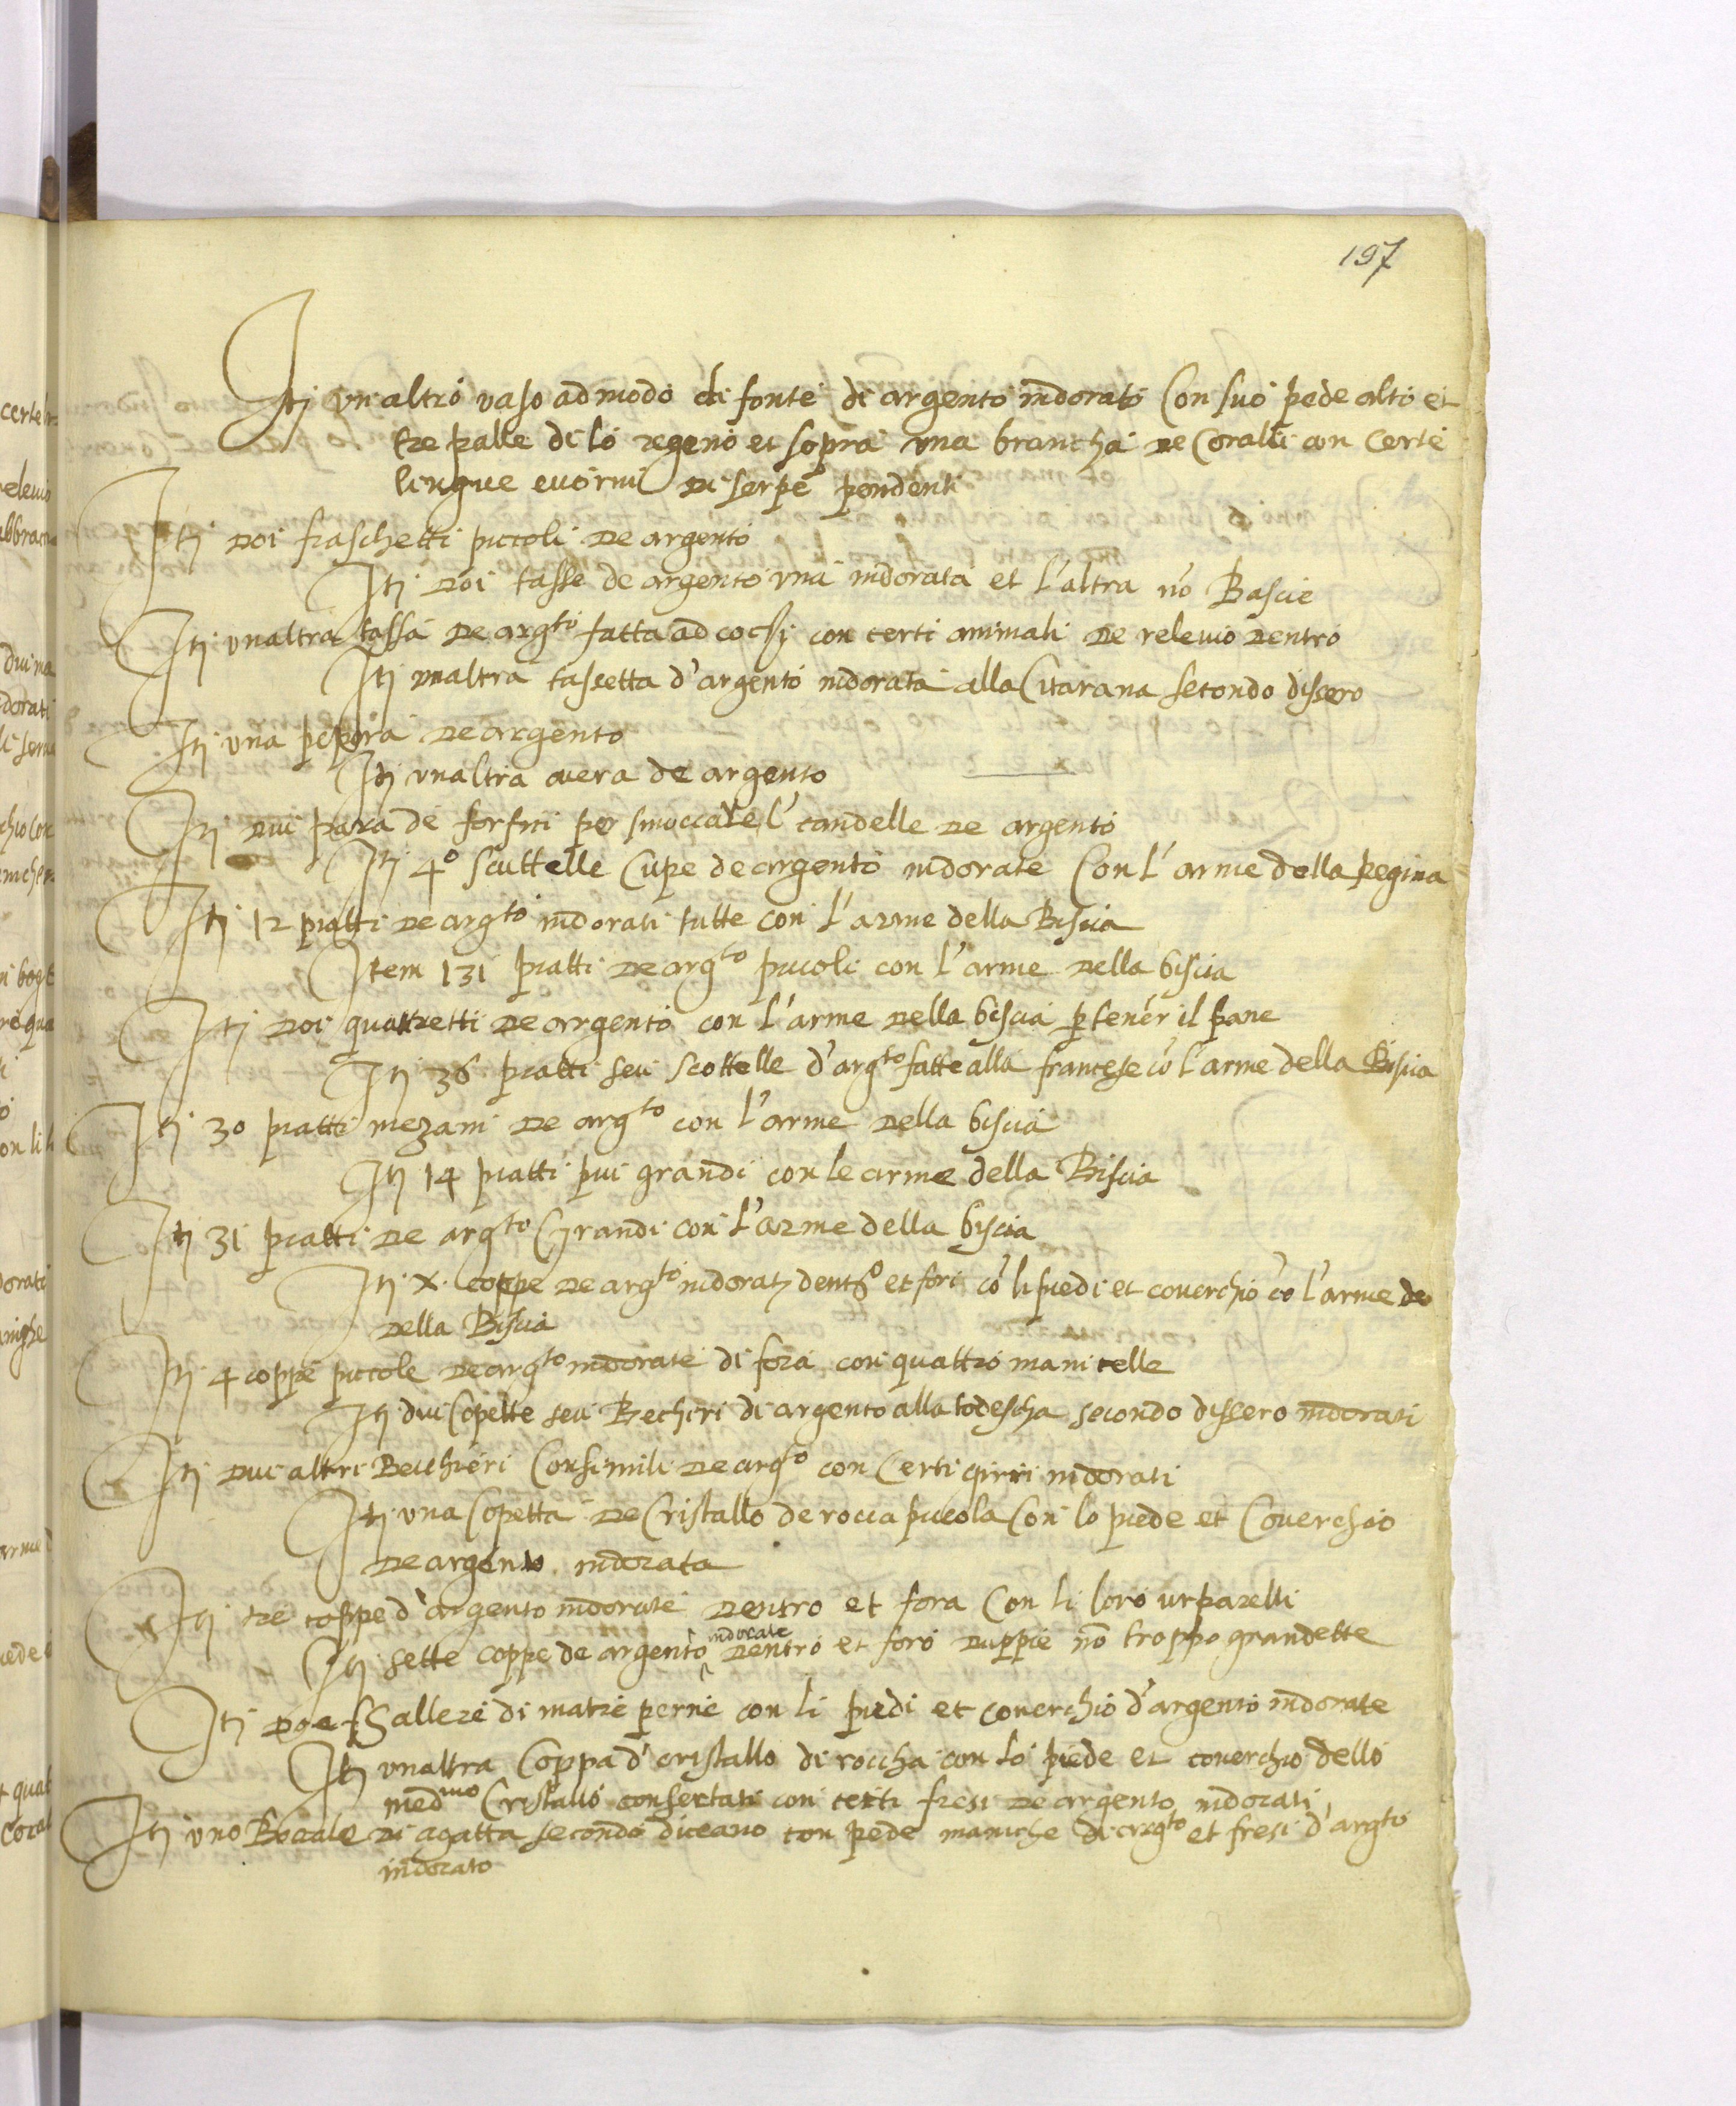 197
Itj un altro vaso ad modo di fonte di argento indorato Con suo pede alto et
tre palle di lo regeno et sopra una brancha de Coralli con Certe
lingue di serpe pendenti
Itj doi fraschetti piccoli de argento
Itj doi tasse de argento una indorata et l'altra nõ Bascie
Itj unaltra tassa de argto fatta ad cocsj con certi animali de relevio dentro
Itj unaltra tascetta d'argento indorata alla Citarana secondo dissero
Itj una de argento
Itj unaltra overa de argento
Itj dui para de forfici per smoccare l' candelle de argento
Itj 4o scuttelle Cupe de argento indorate Con l'arme della Regina
Itj 12 piatti de argto indorati tutte con l'arme della Biscia
Item 131 piatti de argto piccoli con l'arme della biscia
Itj doi quatretti de argento con l'arme della biscia p tener il pane
Itj 36 piatti seu scottelle d'argto fatte alla francese cõ l'arme della Biscia
Itj 30 piatti mezani de argto con l'arme della biscia
Itj 14 piatti piu grandi con le arme della Biscia
Itj 31 piatti de argto Grandi con l'arme della biscia
Itj x coppe de argto indoratj dentro et fori cõ li piedi et coverchio cõ l'arme de
della Biscia
Itj 4 coppe piccole de argto indorate di fora con quattro manicelle
Itj dui Copette seu Bechiri di argento alla todescha secondo dissero indorati
Itj dui altri Becchieri Consimili de argto con Certi girii indorati
Itj una Copetta de Cristallo de rocca piccola Con lo piede et Coverchio
de argento indorata
Itj tre coppe d'argento indorate dentro et fora Con li loro urparelli
Itj sette coppe de argento indorate dentro et foro duppie nõ troppo grandette
Itj doe Sallere di matre perne con li piedi et coverchio d'argento indorate
Itj unaltra Coppa d' cristallo di roccha con lo piede et coverchio dello
medmo Cristallo consertati con certi fresi de argento indorati
Itj uno Bocale di agatta secondo diceano con pede maniche di argto et fresi d'argto
indorato